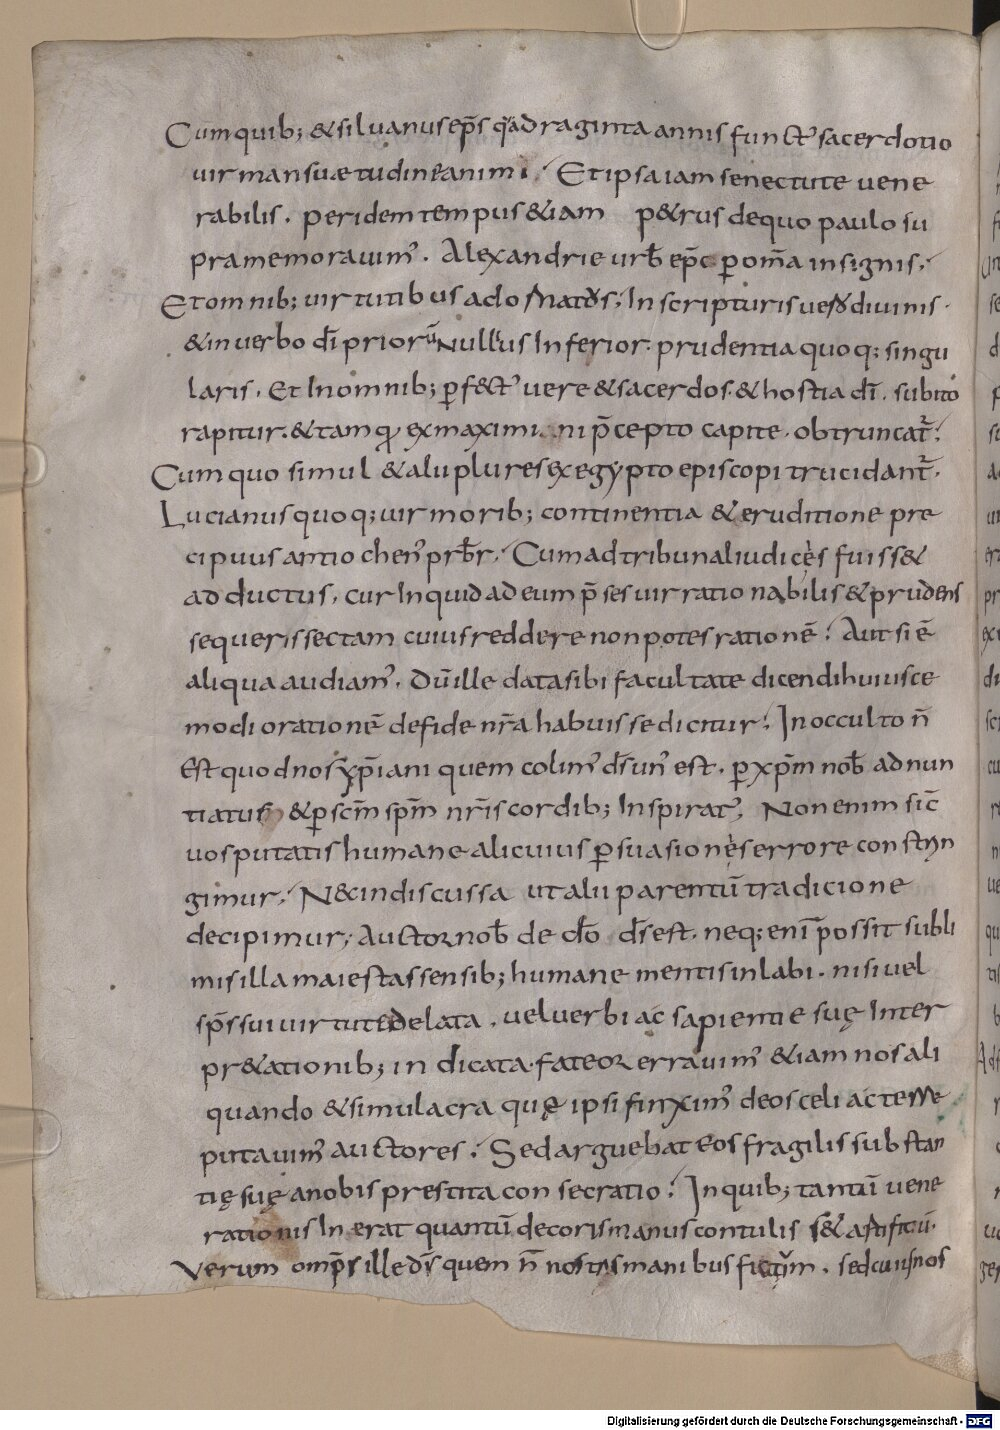 Cum quib; & siluanus ep̄s quadraginta annis funct᾽ sacerdotio
uir mansuætudine animi. Et ipsa iam senectute uene
rabilis. per idem tempus & iam p&rus de quo paulo su
pra memorauim᾽. Alexandrie urb̄ ep̄c p̄ om̄a insignis.
Et omnib; uirtutibus adornat᾽
& in uerbo dī priorū Nullius Inferior. prudentia quoq; singu
laris. Et In omnib; ꝑf&t᾽ uere & sacerdos & hostia dī. subito
rapitur. & tamq̄ ex maximini p̄cepto capite obtruncat̄.
Cum quo simul & alii plures ex egypto episcopi trucidant̄.
Lucianus quoq; uir morib; continentia & eruditione pre
cipuus antiochen᾽ prb̄r. Cum ad tribunal iudicẹs fuiss&
adductus. cur Inquid ad eum p̄ses uir rationabilis & prudens
sequeris sectam cuius reddere non potes rationē. Aut si ē
aliqua audiam᾽. Dū ille data sibi facultate dicendi huiusce
modi orationē de fide nr̄a habuisse dicitur. In occulto n̄
Est quod nos xp̄iani quem colim᾽ d̄s un᾽ est. ꝑ xp̄m nob̄ adnun
tiatus & ꝑ sc̄m sp̄m nr̄is cordib; Inspirat᾽. Non enim sic̄
uos putatis humane alicuius ꝑsuasionẹs errore constrin
gimur. N& indiscussa ut alii parentū tradicione
decipimur. Auctor nob̄ de do̅ d̄s est. neq; enī possit subli
mis illa maiestas sensib; humane mentis inlabi. nisi uel
sp̄s sui uirtute delata. uel uerbi ac sapientie suę Inter
pr&ationib; indicata. fateor errauim᾽ &iam nos ali
quando & simulacra quę ipsi finxim᾽ deos celi ac terre
putauim᾽ auctores. Sed arguebat eos fragilis substan
tię suę a nobis prestita consecratio. In quib; tantū uene
rationis In erat quantū decoris manus contulis s& artificū.
Verum omp̄s ille d̄s quem n̄ nostris manibus fictum. sed cuius nos
Digitalisierung gefördert durch die Deutsche Forschungsgemeinschaft - DFG